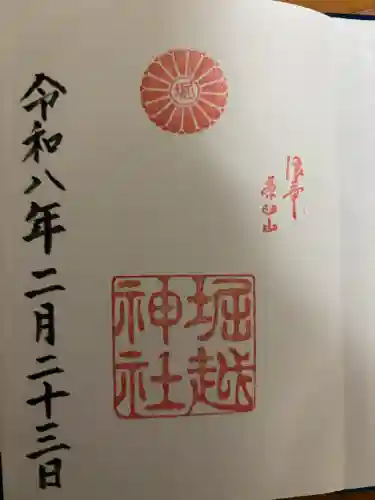 浪華
茶臼山
堀
堀越
神社
令和八年二月二十三日